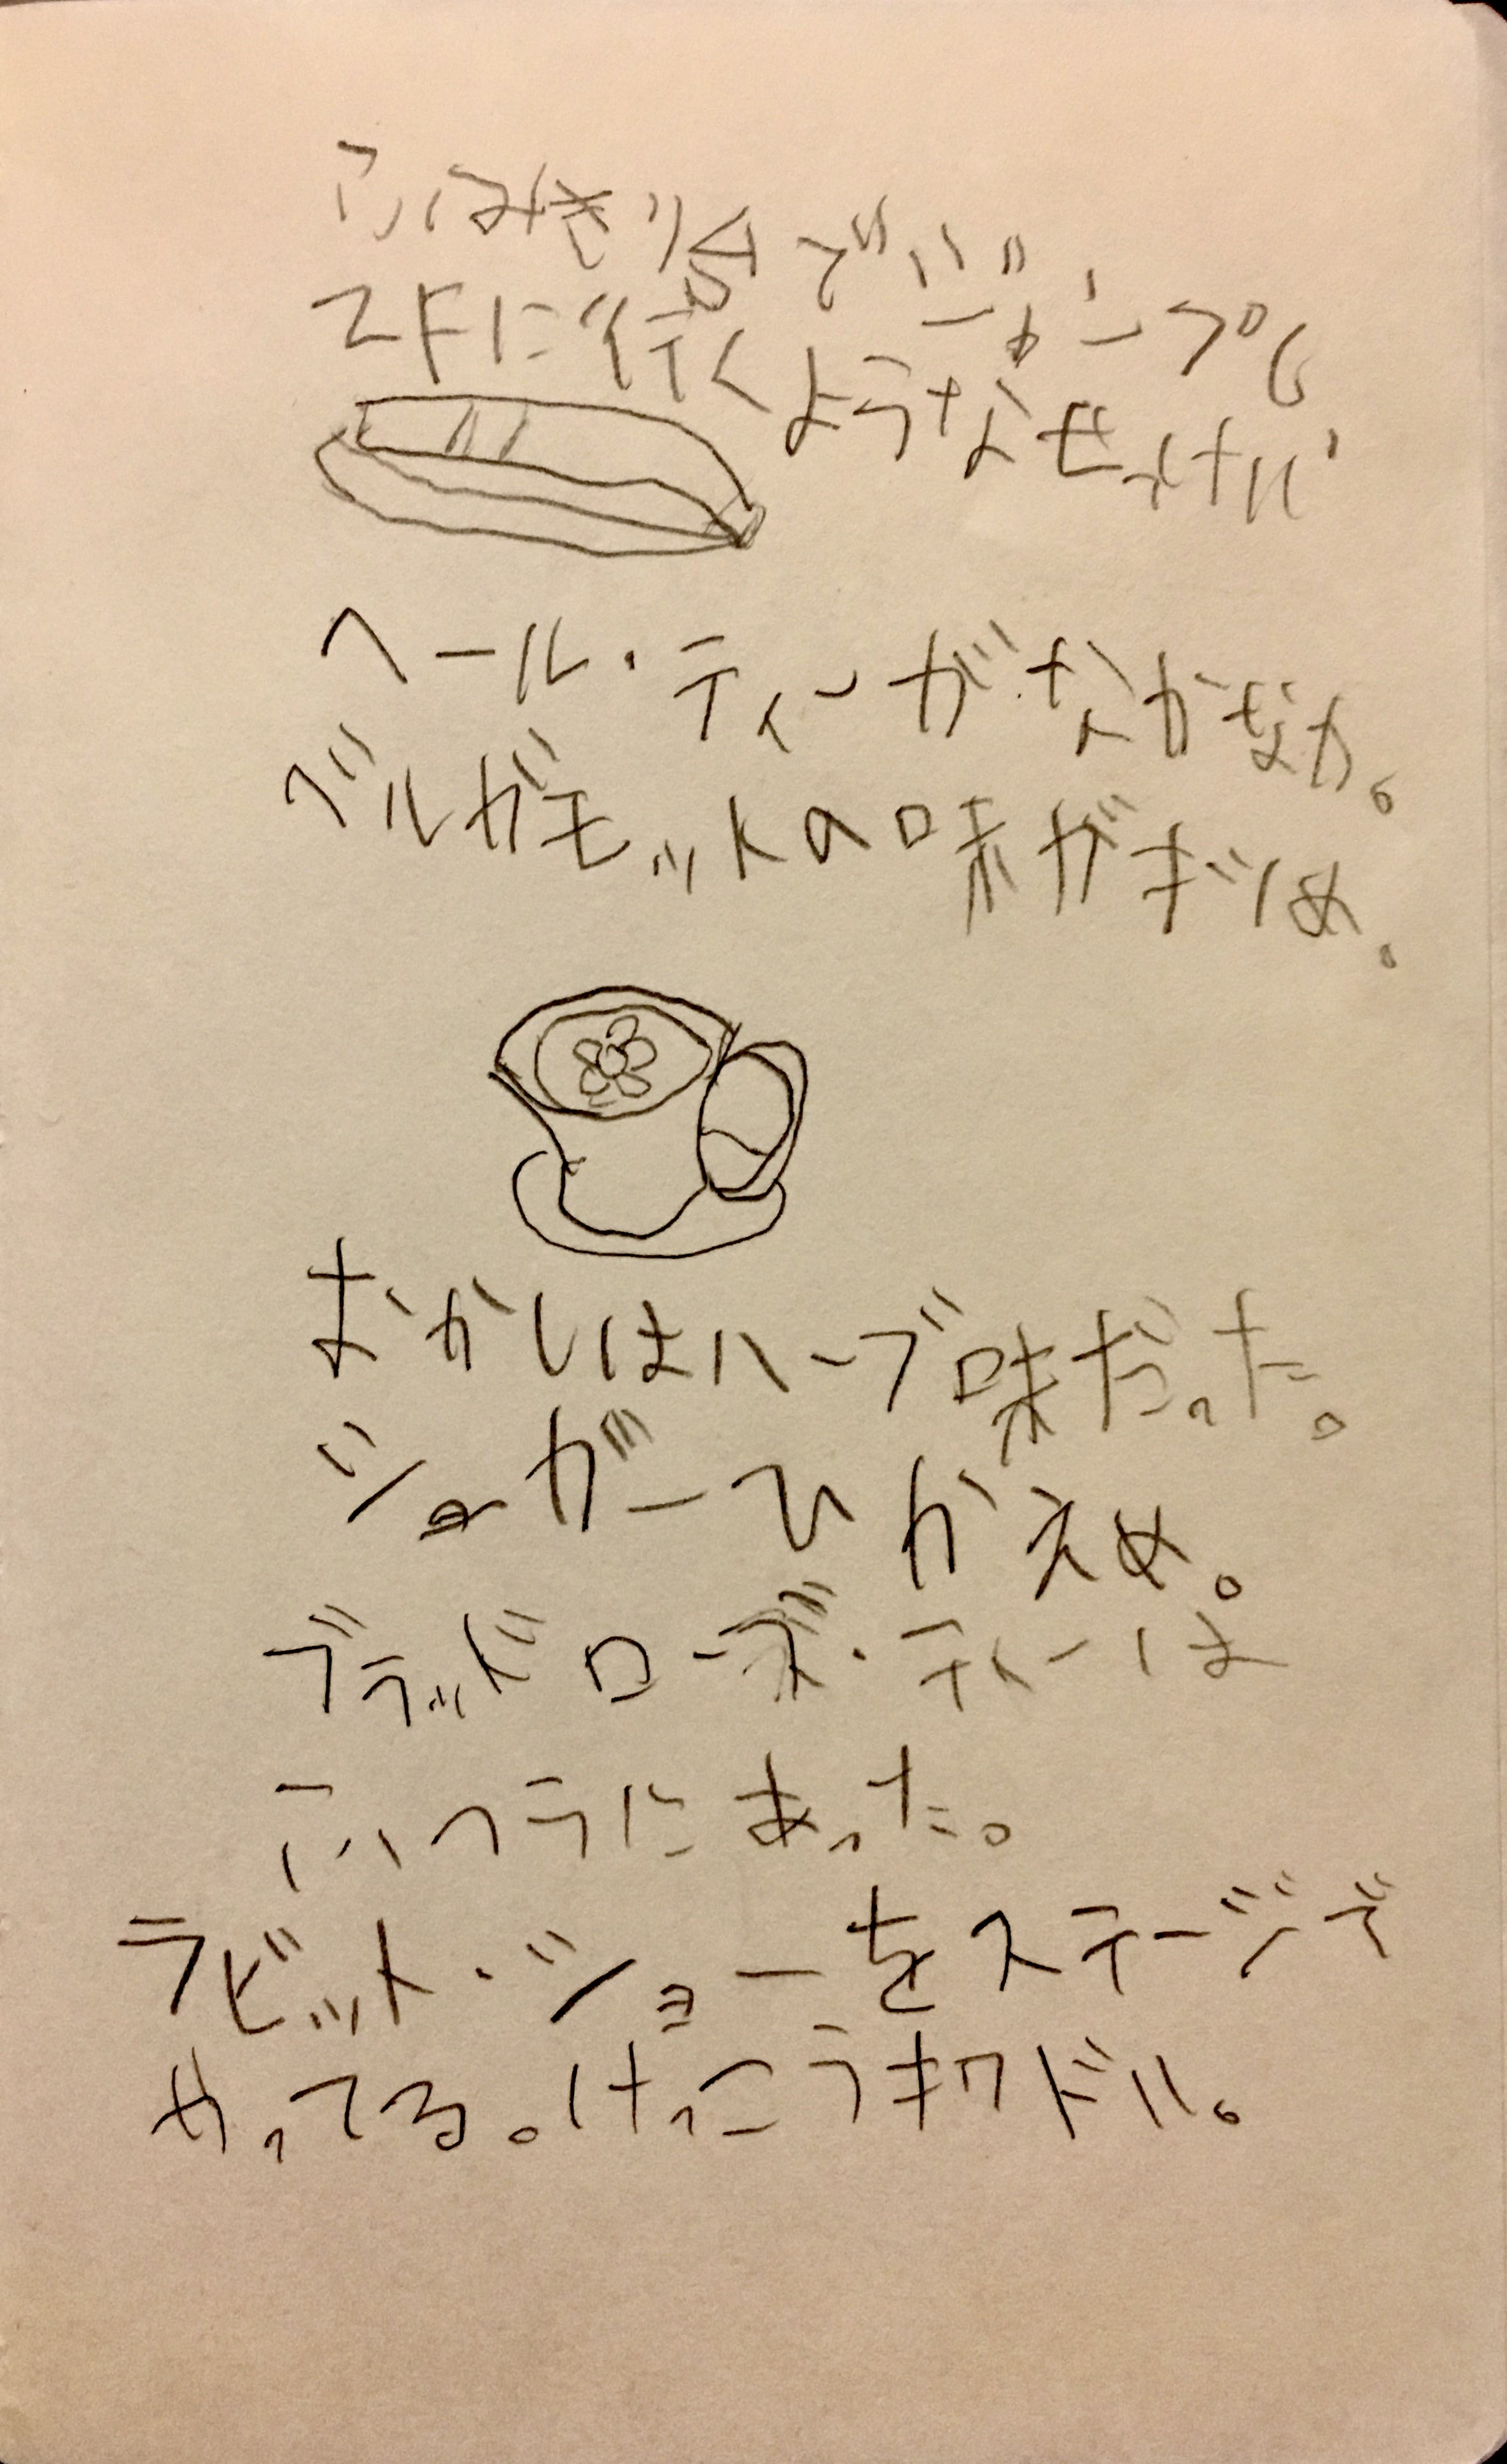 ふみきり台でジャンプし
2Fに行くようなせっけい
ペール・ティーがなかなか。
ベルガモットの味がキツめ。
おかしはハーブ味だった。
シュガーひかえめ。
ブラッドローズ・ティーは
ふつうにあった。
ラビット・ショーをステージで
やってる。けっこうキワドい。